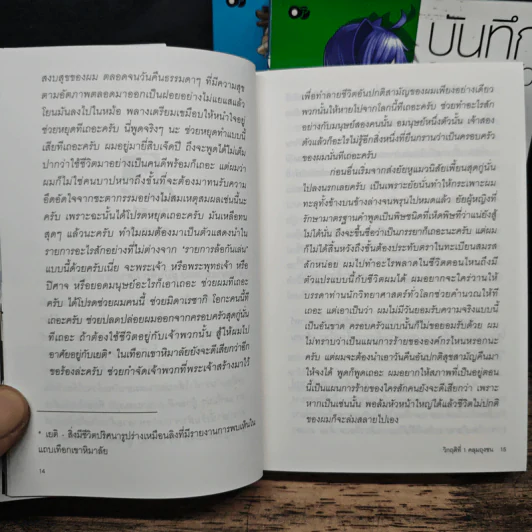 บันทึก
สงบสุขของผม ตลอดจนวันคืนธรรมดาๆ ที่มีความสุข
ตามอัตภาพตลอดมาออกเป็นฝอยอย่างไม่แยแสแล้ว
โยนมันลงไปในหม้อ พลางเตรียมเชมือบให้หนำใจอยู่
ช่วยหยุดทีเถอะครับ นี่พูดจริงๆ นะ ช่วยหยุดทำแบบนี้
เสียทีเถอะครับ ผมอยู่มายี่สิบเจ็ดปี ถึงจะพูดได้ไม่เต็ม
ปากว่าใช้ชีวิตมาอย่างเป็นคนดีพร้อมก็เถอะ แต่ผมว่า
ผมก็ไม่ใช่คนบาปหนาถึงขั้นที่จะต้องมาทนรับความ
อึดอัดใจจากชะตากรรมอย่างไม่สมเหตุสมผลเช่นนี้นะ
ครับ เพราะฉะนั้นได้โปรดหยุดเถอะครับ มันเหลือทน
สุดๆ แล้วนะครับ ทำไมผมต้องมาเป็นตัวแสดงนำใน
รายการอะไรสักอย่างที่ไม่ต่างจาก 'รายการล้อกันเล่น'
แบบนี้ด้วยครับเนี่ย จะพระเจ้า หรือพระพุทธเจ้า หรือ
ปีศาจ หรือยอดมนุษย์อะไรก็เอาเถอะ ช่วยผมทีเถอะ
ครับ ได้โปรดช่วยผมคนนี้ ช่วยมิดาเรซากิ โอกะคนนี้ที
เถอะครับ ช่วยปลดปล่อยผมออกจากครอบครัวสุดกู่นั่น
ทีเถอะ ถ้าต้องใช้ชีวิตอยู่กับเจ้าพวกนั้น สู้ให้ผมไป
อาศัยอยู่กับเยติ* ในเทือกเขาหิมาลัยยังจะดีเสียกว่าอีก
ขอร้องล่ะครับ ช่วยกำจัดเจ้าพวกที่พระเจ้าสร้างมาไว้
* เยติ - สิ่งมีชีวิตปริศนารูปร่างเหมือนลิงที่มีรายงานการพบเห็นใน
แถบเทือกเขาหิมาลัย
14
เพื่อทำลายชีวิตอันปกติสามัญของผมเพียงอย่างเดียว
พวกนั้นให้หายไปจากโลกนี้ทีเถอะครับ ช่วยทำอะไรสัก
อย่างกับมนุษย์สองคนนั้น อมนุษย์หนึ่งตัวนั่น เจ้าสอง
ตัวแล้วก็อะไรไม่รู้อีกสิ่งหนึ่งที่ยืนกรานว่าเป็นครอบครัว
ของผมนั่นทีเถอะครับ
ก่อนอื่นเริ่มจากส่งยัยหูแมวนิสัยเพี้ยนสุดกู่นั่น
ไปลงนรกเลยครับ เป็นเพราะยัยนั่นทำให้กระเพาะผม
ทะลุทั้งข้างบนข้างล่างจนพรุนไปหมดแล้ว ยัยผู้หญิงที่
รักษามาตรฐานค่าพูดเป็นพิษชนิดที่เห็ดพิษที่ว่าแน่ยังสู้
ไม่ได้นั่น ถึงจะขึ้นชื่อว่าเป็นภรรยาก็เถอะนะครับ แต่ผม
ก็ไม่ได้สิ้นหวังถึงขั้นต้องประทับตราในทะเบียนสมรส
สักหน่อย ผมไปทำอะไรพลาดในชีวิตตอนไหนถึงมี
ตัวแปรแบบนี้กับชีวิตผมได้ ผมอยากจะใคร่วานให้
บรรดาท่านนักวิทยาศาสตร์ทั่วโลกช่วยคำนวณให้ที
เถอะ แต่เอาเป็นว่า ผมไม่มีวันยอมรับความจริงแบบนี้
เป็นอันขาด ครอบครัวแบบนั้นก็ไม่ขอยอมรับด้วย ผม
ไม่ทราบว่าเป็นแผนการร้ายขององค์กรไหนหรอกนะ
ครับ แต่ผมจะต้องนำเอาวันคืนอันปกติสุขสามัญคืนมา
ให้จงได้ พูดก็พูดเถอะ ผมอยากให้สภาพที่เป็นอยู่ตอน
นี้เป็นแผนการร้ายของใครสักคนยังจะดีเสียกว่า เพราะ
หากเป็นเช่นนั้น พอล้มหัวหน้าใหญ่ได้แล้วชีวิตไม่ปกติ
ของผมก็จะล่มสลายไปเอง
วิกฤติที่ 1 คลุมถุงชน 15